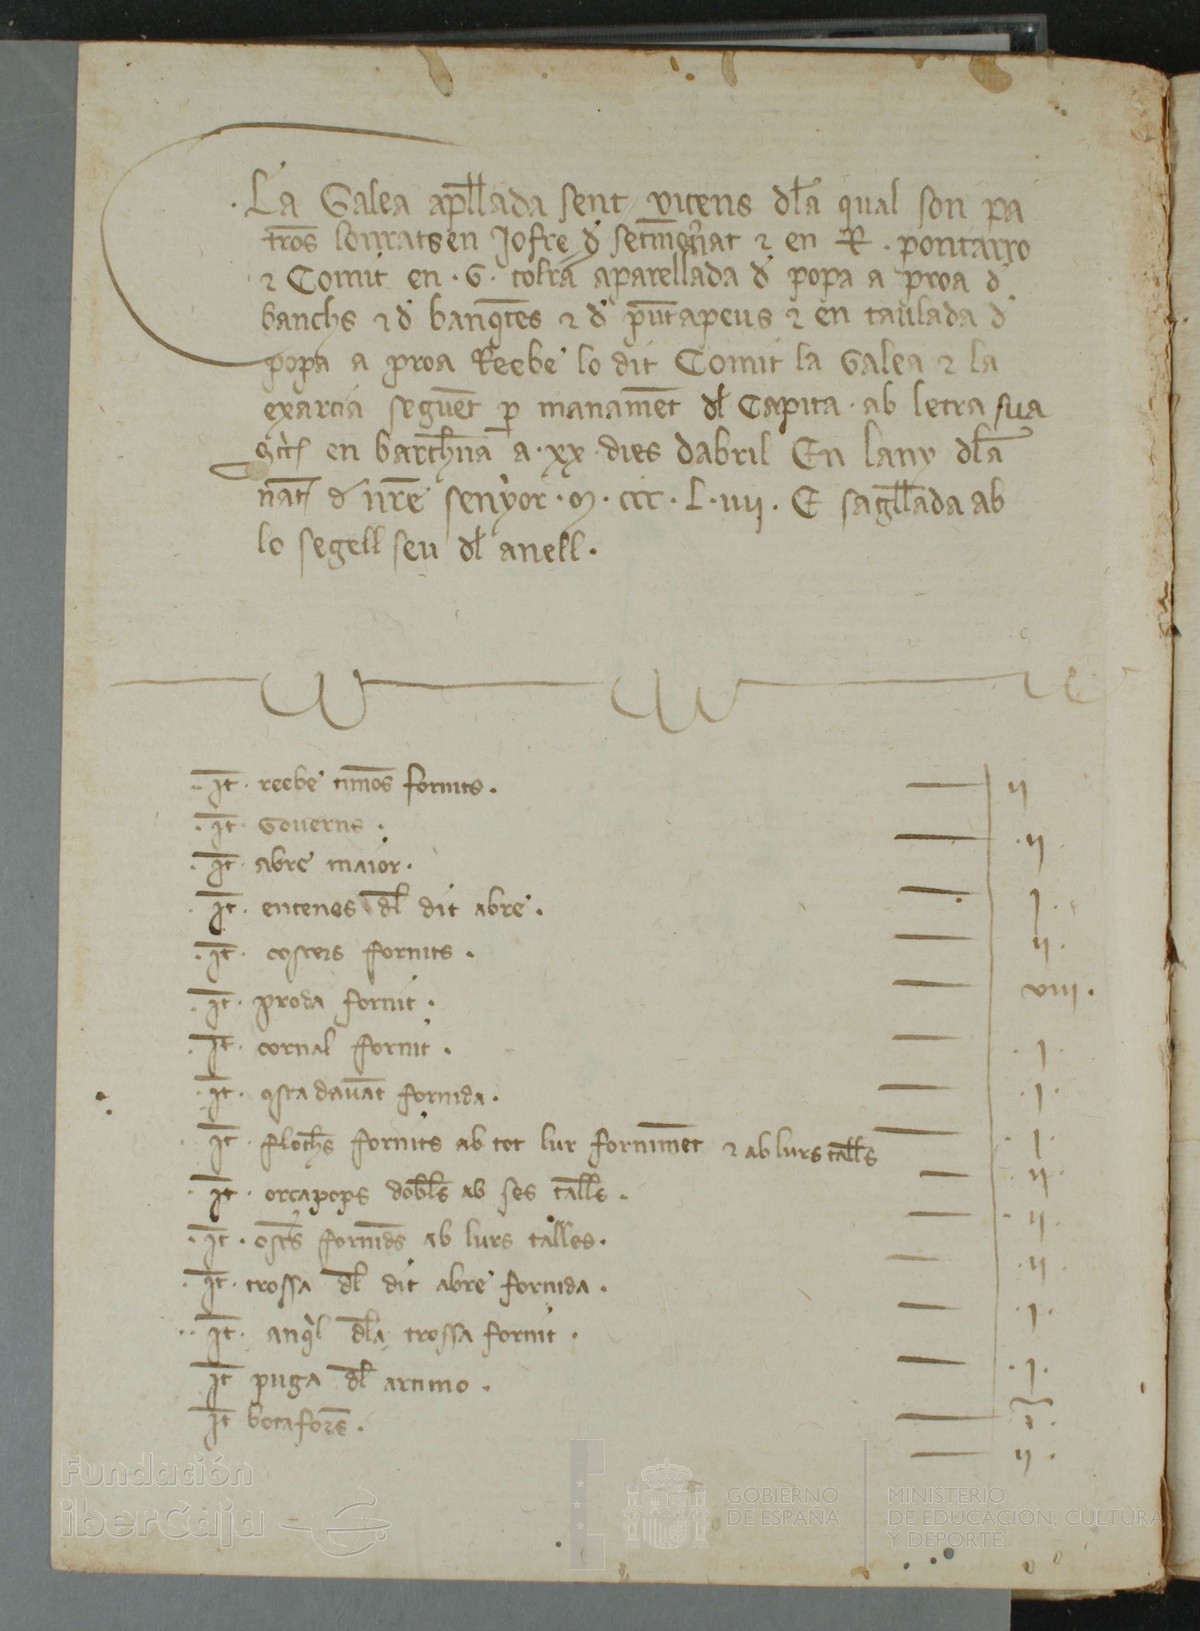 La Galea apllada sent vicens dla qual son pa
trōs lonrats en Jofre d setmōnat ⁊ en R. pontarro
⁊ Comit en .G. tolra aparellada d popa a proa d
banchs ⁊ d banqtes ⁊ d putapeus ⁊ en taulada d
popa a proa Reebe lo dit Comit la Galea ⁊ la
exarcia seguēt p manamēt dl Capita. ab letra sua
en barchna a.xx.dies dabril En lany dla
nat d nre senyor.m.ccc.L.vii. E sagllada ab
lo segell seu dl anell.
It. reebe timōs fornits. ii
.It. Governs. .ii.
.It. abre maior. j.
.It. entenes dl dit abre. ii.
.It. costers fornits. viii.
.It. proda fornit. .j.
.It. cornal fornit. .j.
.It. qsta davāt fornida. .j.
.It. flochs fornits ab tot lur fornimēt ⁊ ab lurs talls .ii.
.It. orcapops dobls ab ses talls. .ii.
.It. osts fornids ab lurs talles. .ii.
.It. trossa dl dit abre fornida. .j.
..It. anql dla trossa fornit. .j.
It puga dl artimo. i.
It botaforē. ii.
Fundación
iberCaja
GOBIERNO
DE ESPAÑA
MINISTERIO
DE EDUCACIÓN, CULTURA
Y DEPORTE